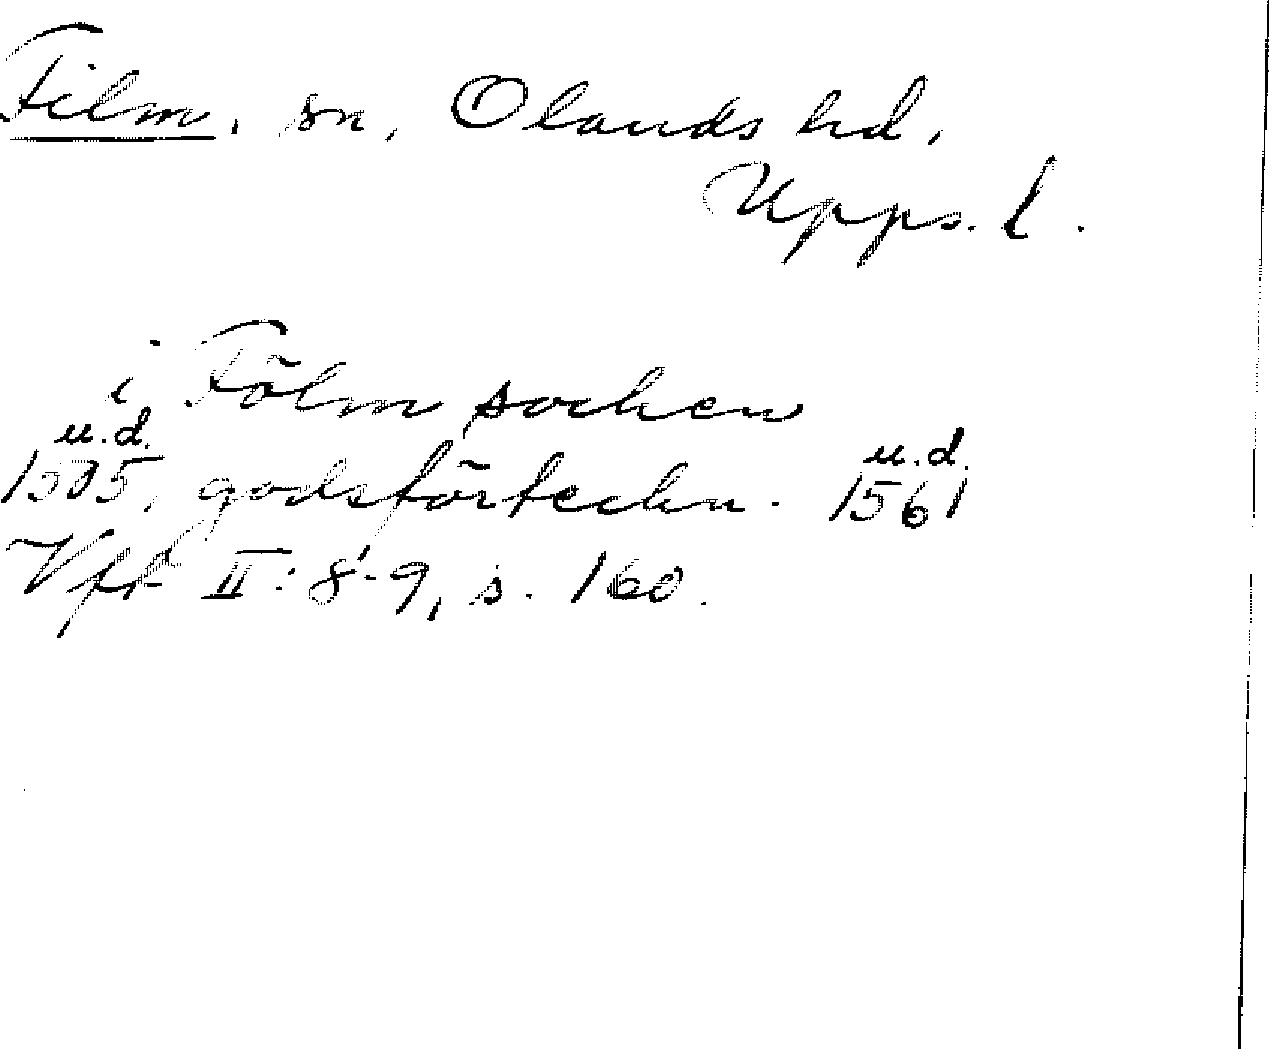 Film, sn, Olands hd,
Upps. l.
i Fölm sochen
u.d. u.d.
1505, godsförteckn. 1561
Vfr II: 8-9, s. 160.